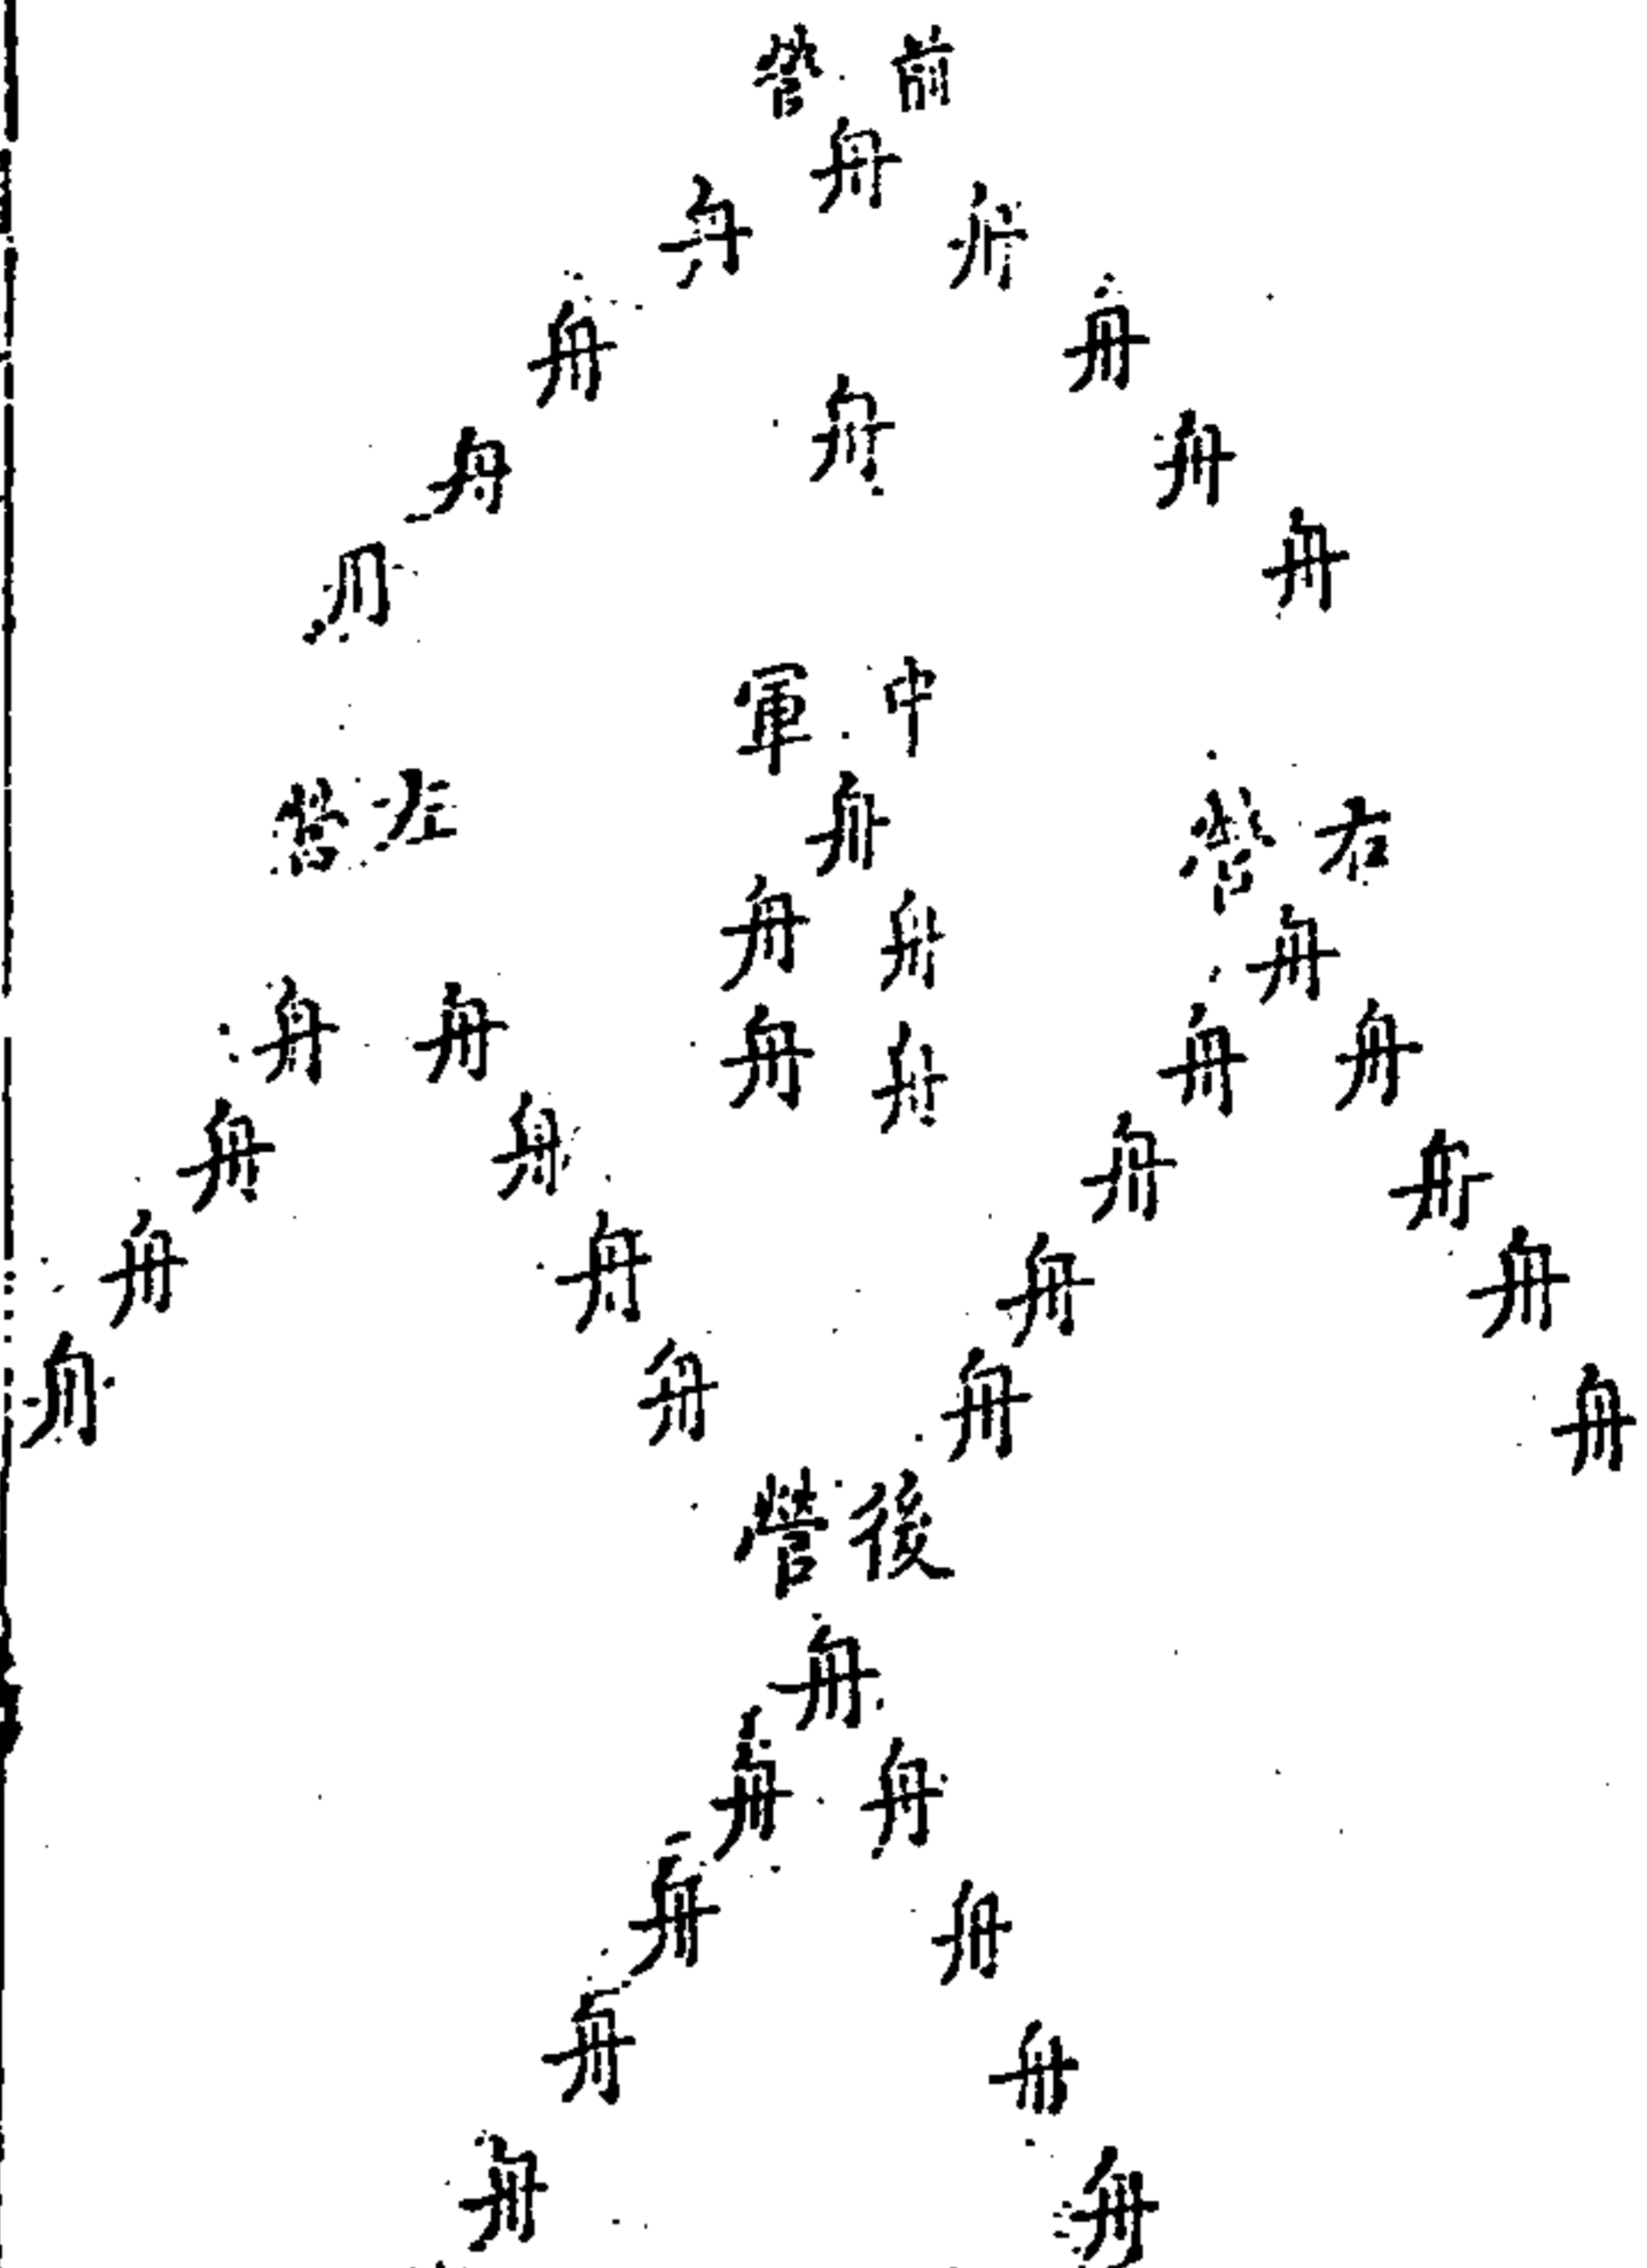 前營
舟
舟舟
舟舟
舟舟舟
舟舟
中軍
舟
舟舟
舟舟
右營
舟
舟舟
舟舟
舟舟
舟舟
左營
舟舟
舟舟
舟舟
舟舟
後營
舟
舟舟
舟舟
舟舟
舟舟